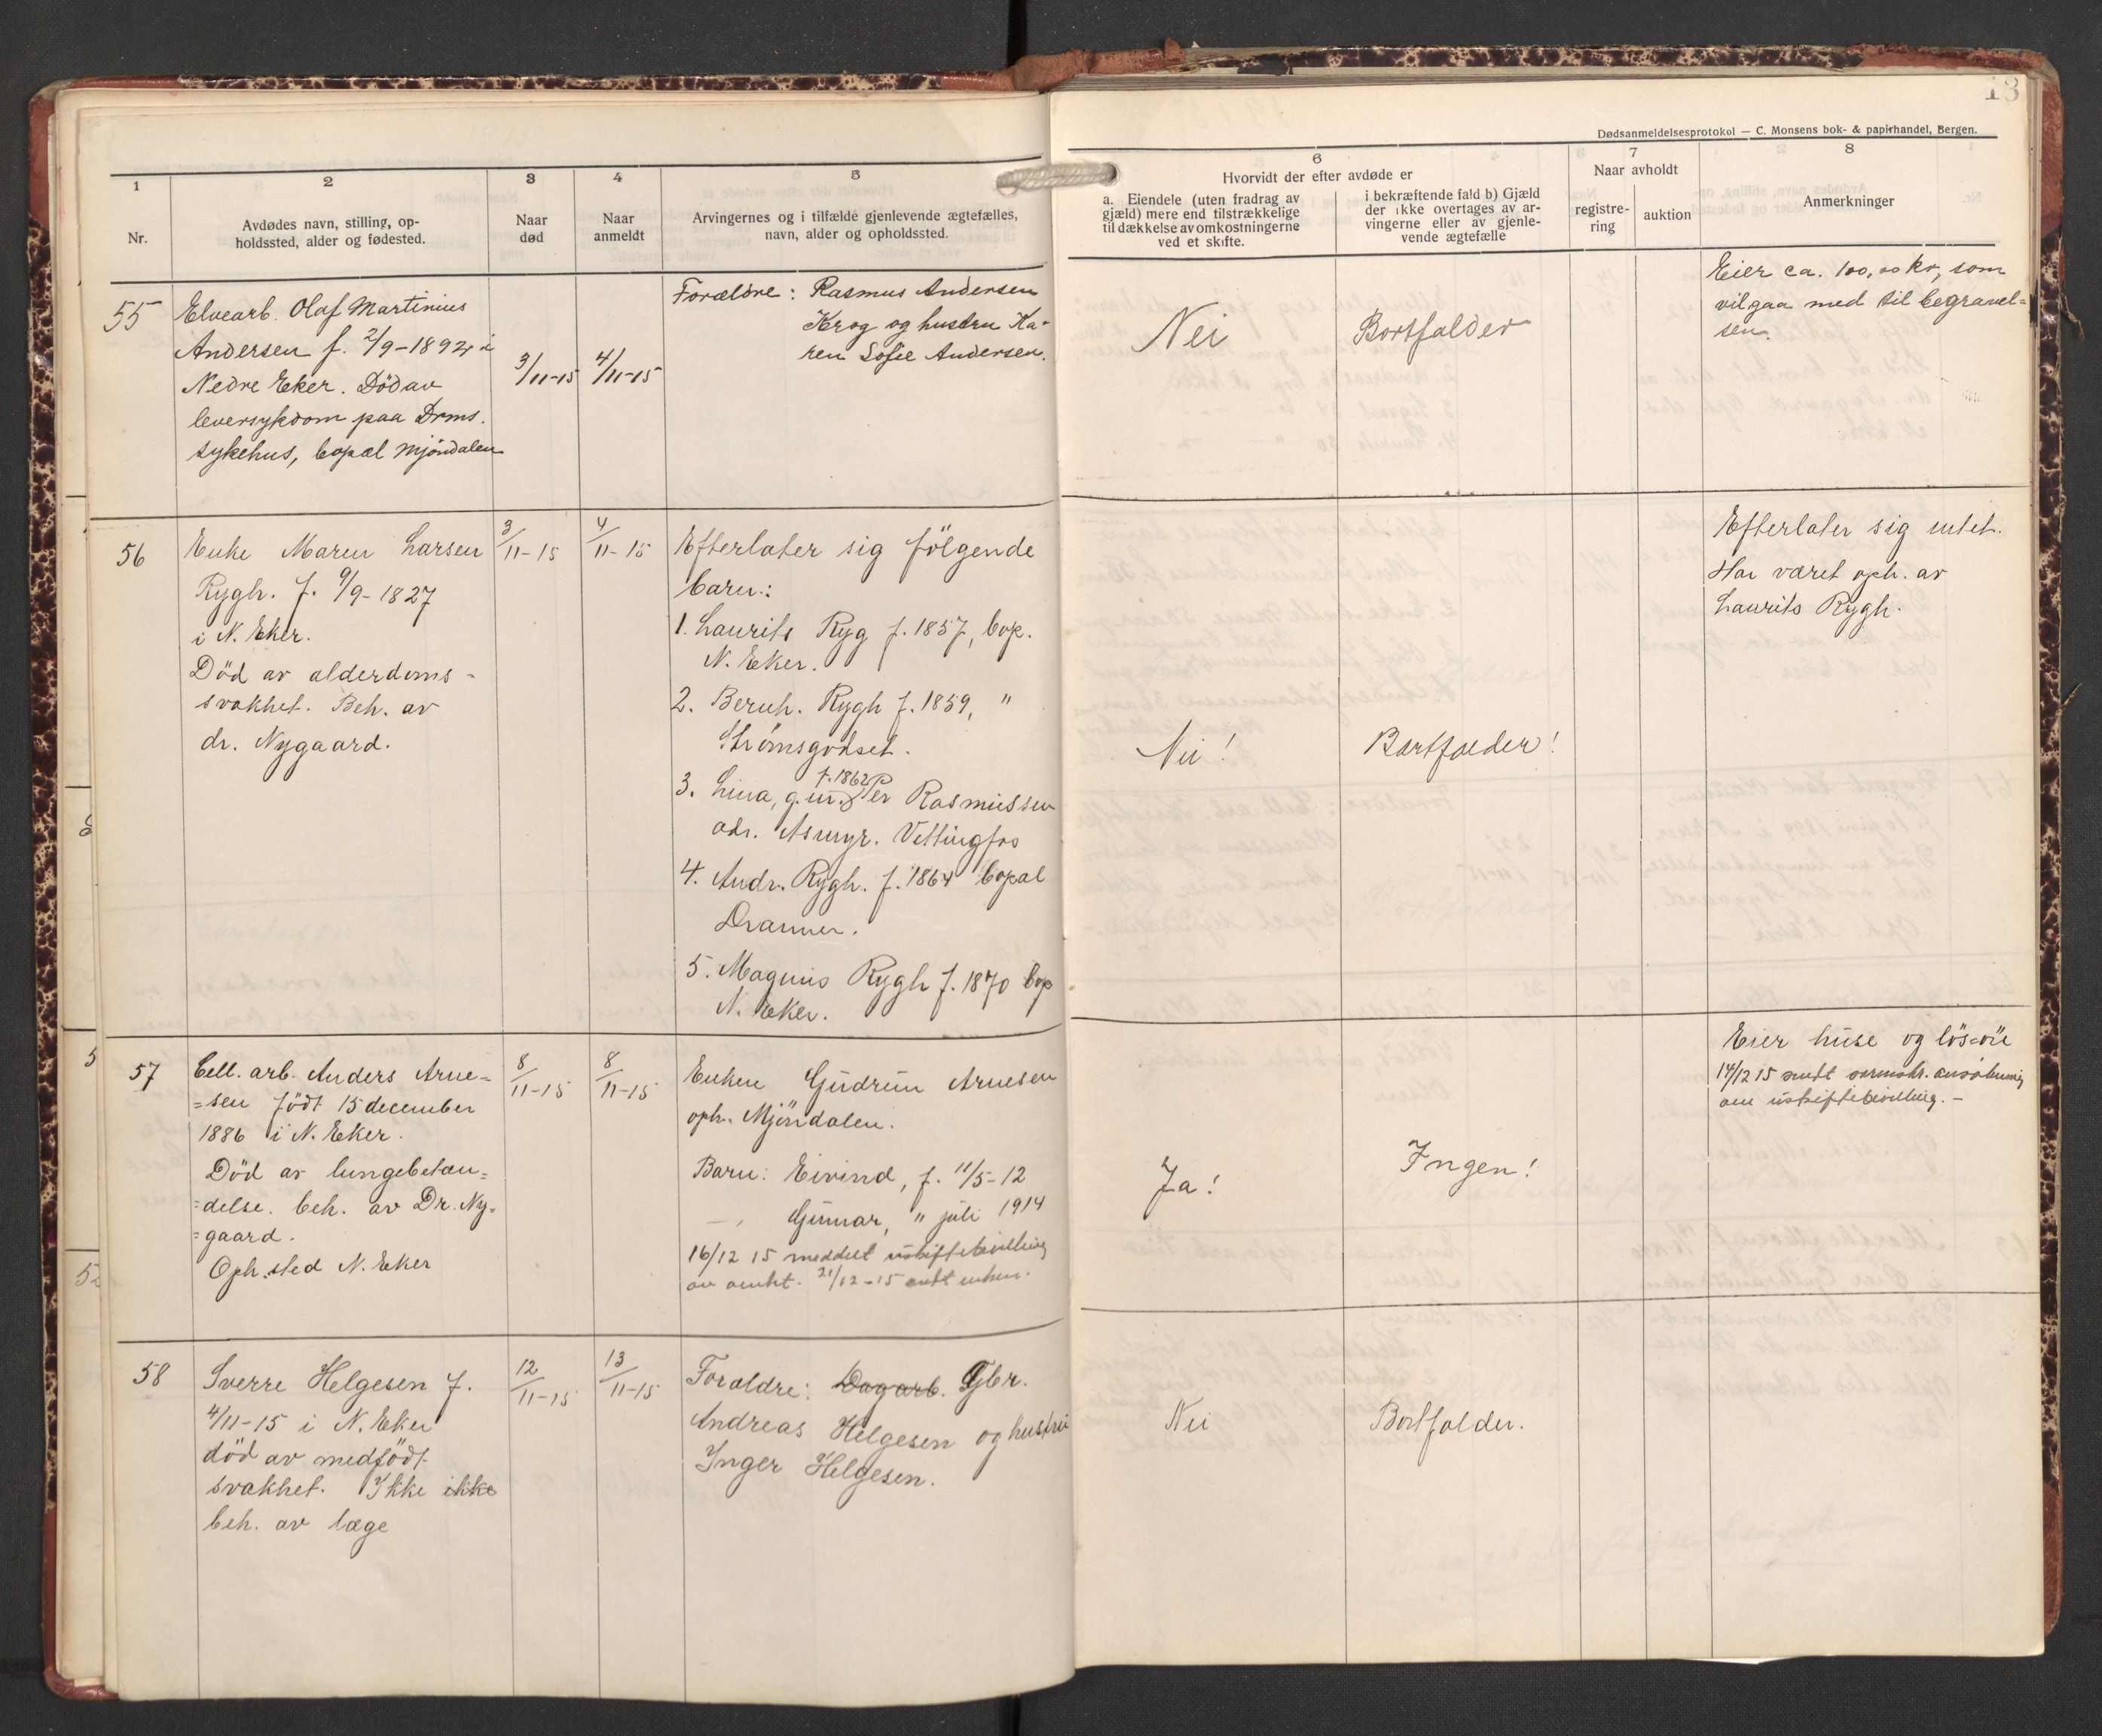 13
Dødsanmeldelsesprotokol — C. Monsens bok- & papirhandel, Bergen.
1
Nr.
2
Avdødes navn, stilling, op-
holdssted, alder og fødested.
3
Naar
død
4
Naar
anmeldt
5
Arvingernes og i tilfælde gjenlevende ægtefælles,
navn, alder og opholdssted.
6
Hvorvidt der efter avdøde er
a. Eiendele (uten fradrag av
gjæld) mere end tilstrækkelige
til dækkelse av omkostningerne
ved et skifte.
i bekræftende fald b) Gjæld
der ikke overtages av ar-
vingerne eller av gjenle-
vende ægtefælle
7
Naar avholdt
registre-
ring
auktion
8
Anmerkninger
55
Elvearb. Olaf Martinius
Andersen f. 2/9-1892 i
Nedre Eker. Död av
leversykdom paa Drms.
sykehus, bopæl Mjöndalen
3/11-15
4/11-15
Forældre: Rasmus Andersen
Krog og hustru Ka-
ren Sofie Andersen.
Nei
Bortfalder
Eier ca. 100,00 kr, som
vil gaa med til begravel=
sen.
56
Enke Maren Larsen
Rygh. f. 9/9-1827
i N. Eker.
Död av alderdoms-
svakhet. Beh. av
dr. Nygaard.
3/11-15
4/11-15
Efterlater sig följgende
barn:
1. Laurits Ryg f. 1857, bop.
N. Eker.
2. Bernh. Rygh f. 1859, "
Strømsgodset.
3. Lina, f. 1862 g.m. Per Rasmussen
adr. Asmyr. Vittingfos
4. Andr. Rygh. f. 1864 bopæl
Drammen.
5. Magnus Rygh f. 1870 bop
N. Eker.
Nei!
Bortfalder!
Efterlater sig intet.
Har været oph. av
Laurits Rygh.
57
Cell. arb. Anders Arne=
=sen født 15 december
1886 i N. Eker.
Död av lungebetæn=
=delse. beh. av Dr. Ny=
=gaard.
Oph.sted N. Eker
8/11-15
8/11-15
Enken Gudrun Arnesen
oph. Mjöndalen.
Barn: Eivind, f. 11/5-12
— , Gunnar, " juli 1914
16/12 15 meddelt uskiftebevilling
av amtet. 21/12-15 sendt enken.
Ja!
Ingen!
Eier huse og lös=öre
14/12 15 sendt sorenskr. ansökning
om uskiftebevilling. —
58
Sverre Helgesen f.
4/11-15 i N. Eker
död av medfödt
svakhet. Ikke ikke
beh. av læge
12/11-15
13/11-15
Forældre: Dagarb. Gbr.
Andreas Helgesen og hustru
Inger Helgesen.
Nei
Bortfalder.